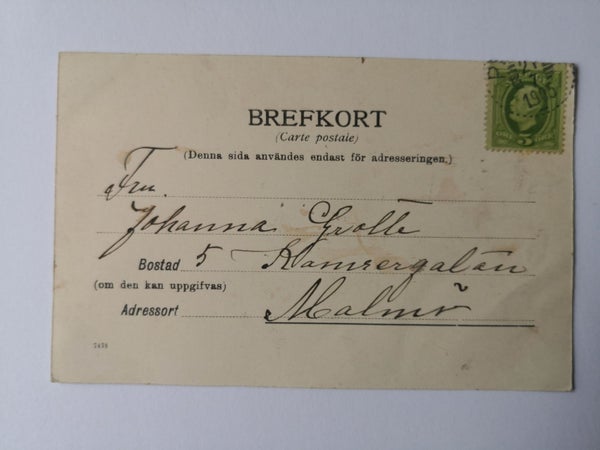 BREFKORT
(Carte postale)
(Denna sida användes endast för adresseringen.)
Fru
Johanna Grotte
Bostad 5 Kamrergatan
(om den kan uppgifvas)
Adressort Malmö
7438
5